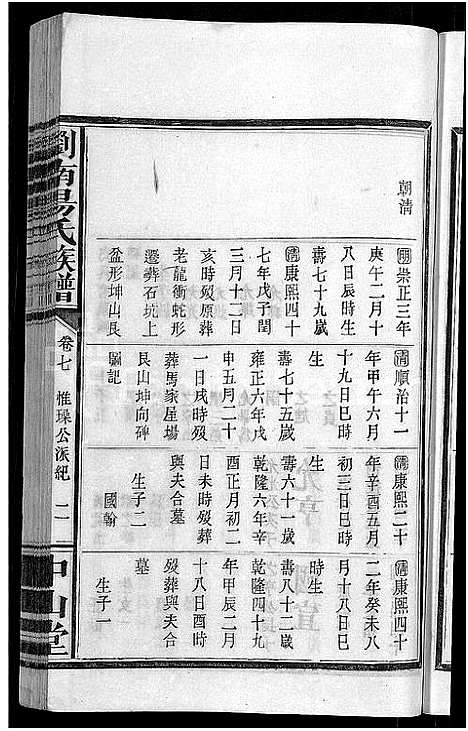 朝清
明崇正三年
庚午二月十
八日辰時生
壽七十九歲
清康熙四十
七年戊子閏
三月十二日
亥時歿原葬
老龍衝蛇形
遷彝石坑上
盆形坤山艮
清順治十一
年甲午六月
十九日巳時
生
壽七十五歲
雍正六年戊
申五月二十
一日戌時歿
葬馬家屋場
艮山坤向碑
圖記
清康熙二十
年辛酉五月
初三日巳時
生
壽六十一歲
乾隆六年辛
酉正月初二
日未時歿葬
與夫合墓
生子二
國翰
清康熙四十
二年癸未八
月十八日巳
時生
壽八十二歲
乾隆四十九
年甲辰二月
十八日酉時
歿葬與夫合
墓
生子一
劉南易氏族譜
卷七
惟琛公派紀
二
中山堂